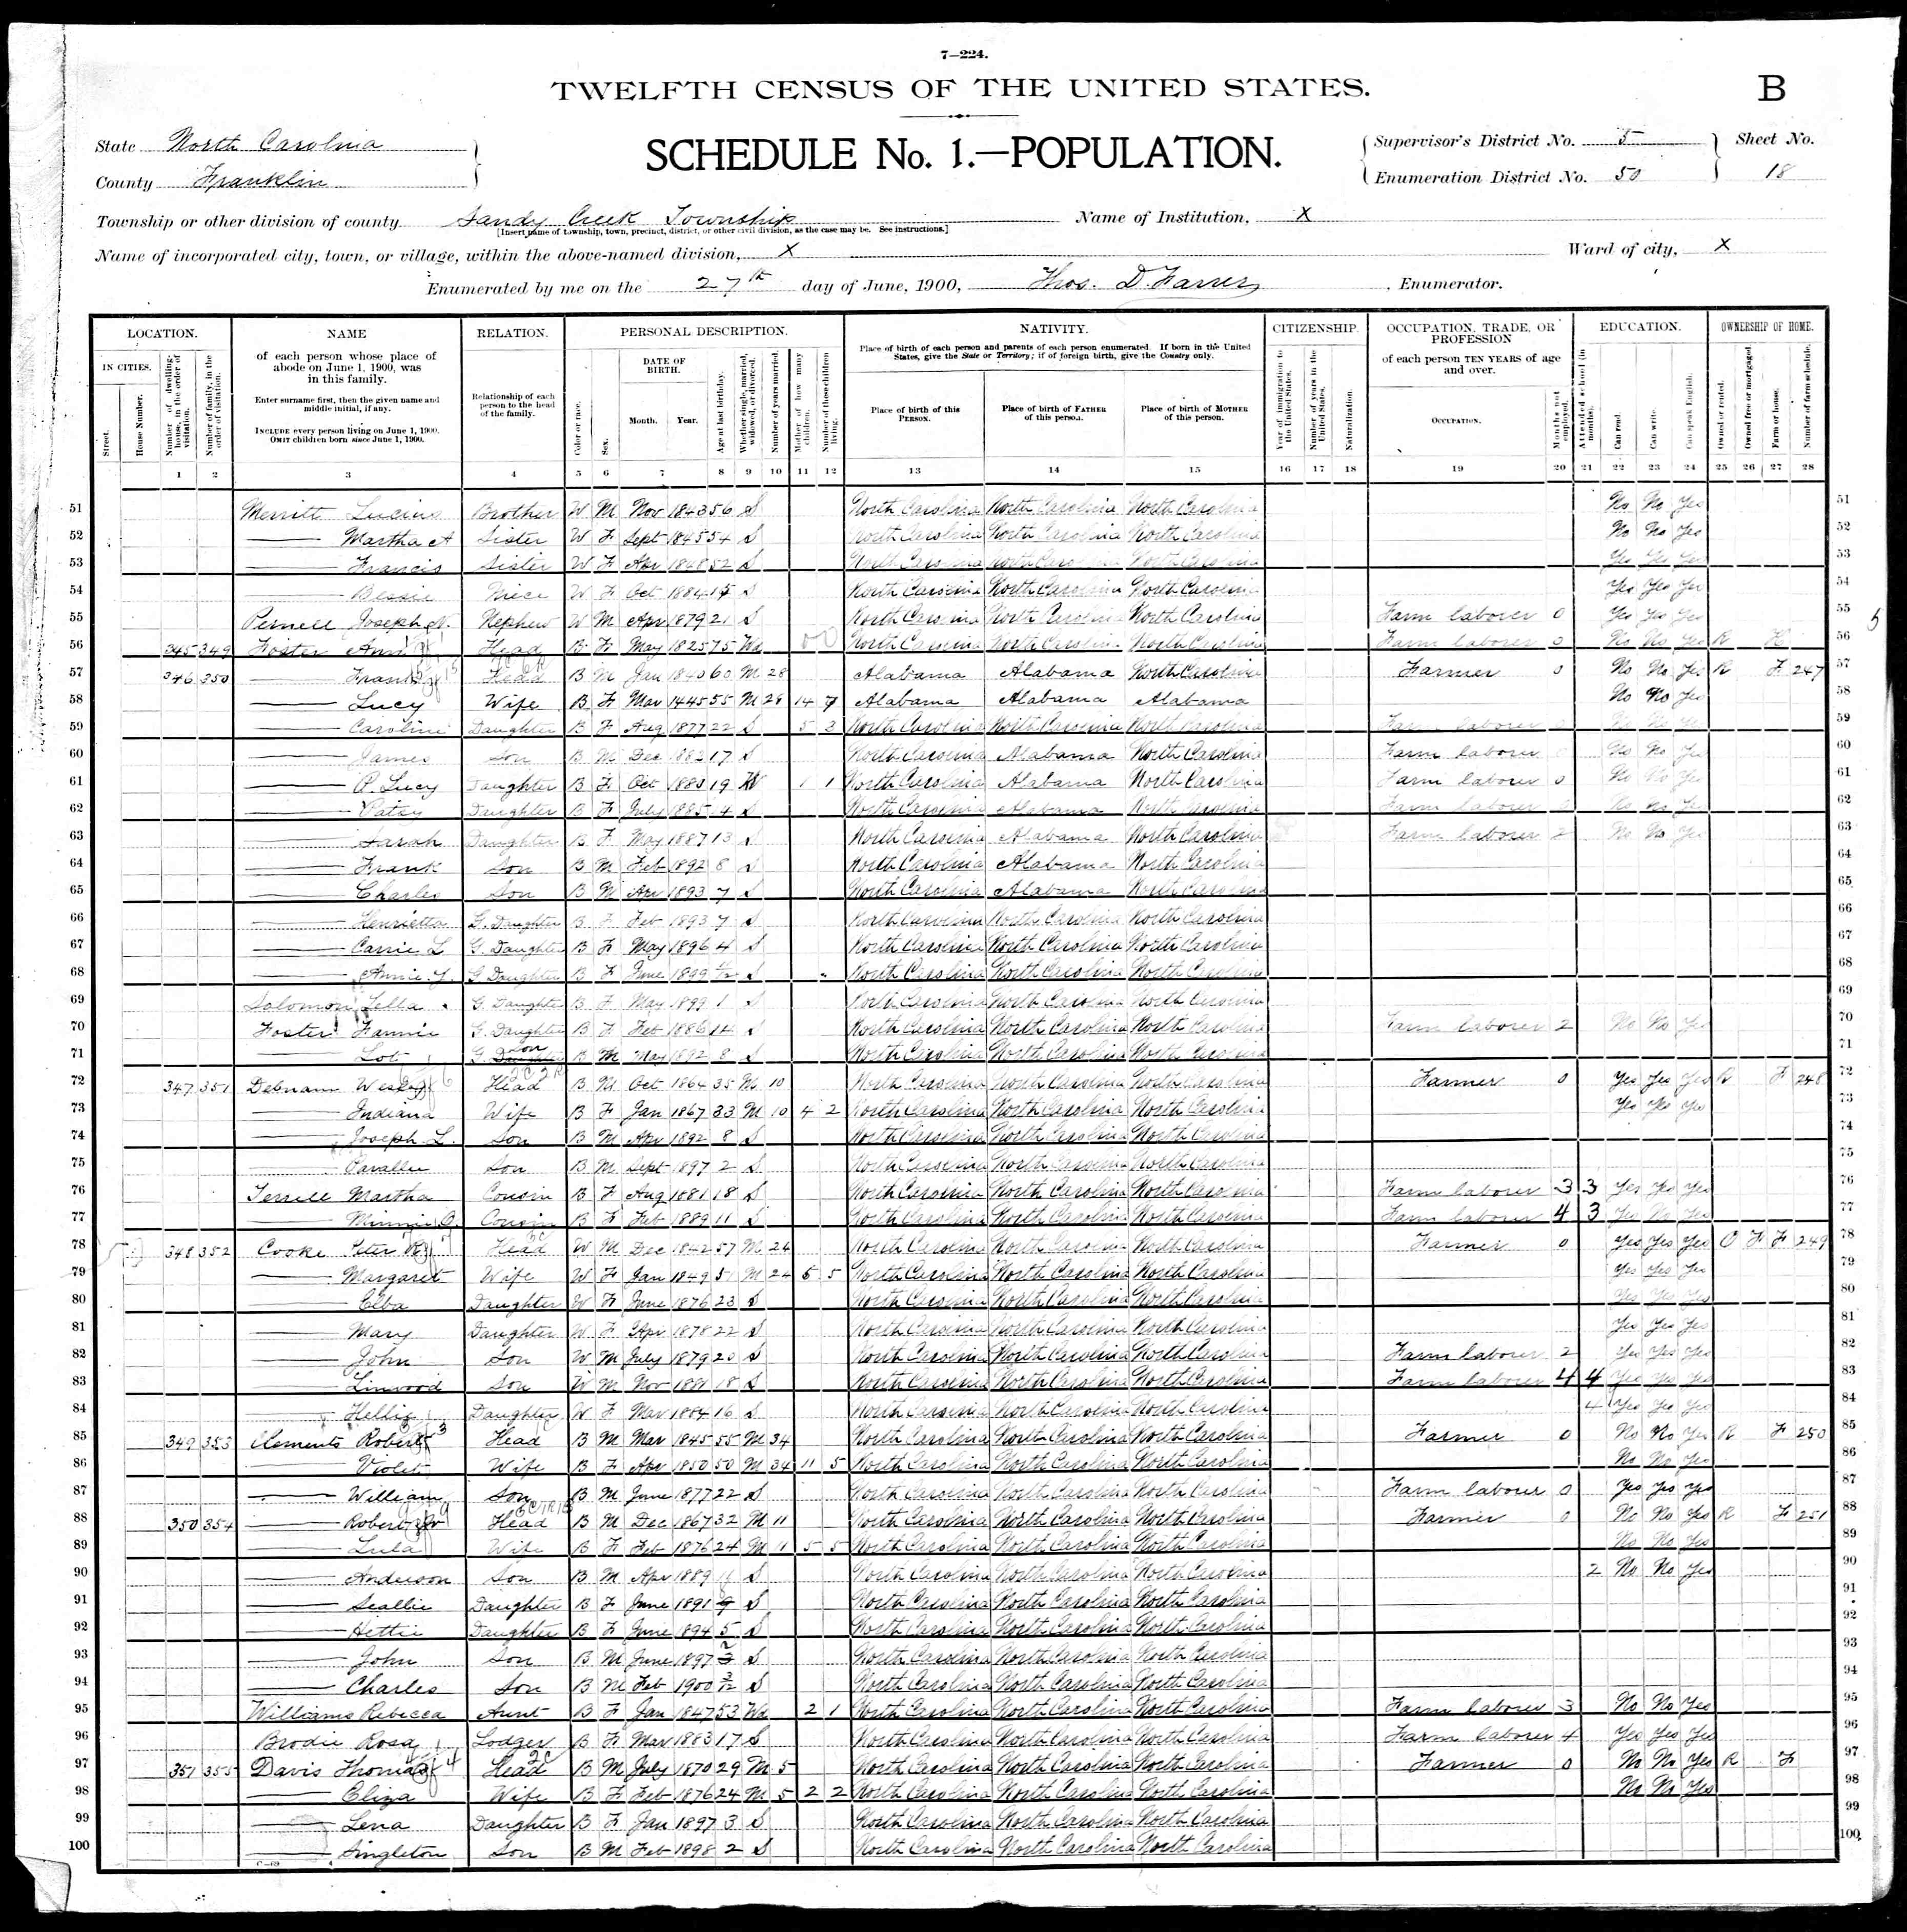 7—224.
TWELFTH CENSUS OF THE UNITED STATES.
B
State North Carolina
County Franklin
SCHEDULE No. 1.—POPULATION.
Supervisor's District No. 5
Enumeration District No. 50
Sheet No.
18
Township or other division of county Sandy Creek Township
[Insert name of township, town, precinct, district, or other civil division, as the case may be. See instructions.]
Name of Institution, X
Name of incorporated city, town, or village, within the above-named division, X
Ward of city, X
Enumerated by me on the 27th day of June, 1900, Thos. D. Farrer, Enumerator.
LOCATION. NAME RELATION. PERSONAL DESCRIPTION. NATIVITY. CITIZENSHIP. OCCUPATION, TRADE, OR PROFESSION EDUCATION. OWNERSHIP OF HOME.
IN CITIES.
Street.
House Number.
Number of dwelling-house, in the order of visitation.
Number of family, in the order of visitation.
of each person whose place of abode on June 1, 1900, was in this family.
Enter surname first, then the given name and middle initial, if any.
INCLUDE every person living on June 1, 1900. OMIT children born since June 1, 1900.
Relationship of each person to the head of the family.
Color or race.
Sex.
DATE OF BIRTH.
Month. Year.
Age at last birthday.
Whether single, married, widowed, or divorced.
Number of years married.
Mother of how many children.
Number of these children living.
Place of birth of each person and parents of each person enumerated. If born in the United States, give the State or Territory; if of foreign birth, give the Country only.
Place of birth of this PERSON.
Place of birth of FATHER of this person.
Place of birth of MOTHER of this person.
Year of immigration to the United States.
Number of years in the United States.
Naturalization.
of each person TEN YEARS of age and over.
OCCUPATION.
Months not employed.
Attended school (in months).
Can read.
Can write.
Can speak English.
Owned or rented.
Owned free or mortgaged.
Farm or house.
Number of farm schedule.
1 2 3 4 5 6 7 8 9 10 11 12 13 14 15 16 17 18 19 20 21 22 23 24 25 26 27 28
51 Merritt Lucius Brother W M Nov 1843 56 S North Carolina North Carolina North Carolina No No Yes 51
52 — Martha A Sister W F Sept 1845 54 S North Carolina North Carolina North Carolina No No Yes 52
53 — Francis Sister W F Apr 1848 52 S North Carolina North Carolina North Carolina Yes Yes Yes 53
54 — Bessie Niece W F Oct 1884 15 S North Carolina North Carolina North Carolina Yes Yes Yes 54
55 Pernell Joseph N. Nephew W M Apr 1879 21 S North Carolina North Carolina North Carolina Farm laborer 0 Yes Yes Yes 55
56 345 349 Foster Ann Head B F May 1825 75 Wd 0 0 North Carolina North Carolina North Carolina Farm laborer 0 No No Yes R H 56
57 346 350 — Frank Head B M Jan 1840 60 M 28 Alabama Alabama North Carolina Farmer 0 No No Yes R F 247 57
58 — Lucy Wife B F Mar 1445 55 M 28 14 7 Alabama Alabama Alabama No No Yes 58
59 — Caroline Daughter B F Aug 1877 22 S 5 3 North Carolina North Carolina North Carolina Farm laborer 0 No No Yes 59
60 — James Son B M Dec 1882 17 S North Carolina Alabama North Carolina Farm laborer 0 No No Yes 60
61 — P. Lucy Daughter B F Oct 1880 19 W 1 1 North Carolina Alabama North Carolina Farm laborer 0 No No Yes 61
62 — Patsy Daughter B F July 1885 4 S North Carolina Alabama North Carolina Farm laborer 0 No No Yes 62
63 — Sarah Daughter B F May 1887 13 S North Carolina Alabama North Carolina Farm laborer 2 No No Yes 63
64 — Frank Son B M Feb 1892 8 S North Carolina Alabama North Carolina 64
65 — Charles Son B M Apr 1893 7 S North Carolina Alabama North Carolina 65
66 — Henrietta G. Daughter B F Feb 1893 7 S North Carolina North Carolina North Carolina 66
67 — Carrie L G. Daughter B F May 1896 4 S North Carolina North Carolina North Carolina 67
68 — Annie Y. G Daughter B F June 1899 11/12 S North Carolina North Carolina North Carolina 68
69 Solomon Lella G. Daughter B F May 1899 1 S North Carolina North Carolina North Carolina 69
70 Foster Fannie G. Daughter B F Feb 1886 14 S North Carolina North Carolina North Carolina Farm laborer 2 No No Yes 70
71 — Lot G. Son B M May 1892 8 S North Carolina North Carolina North Carolina 71
72 347 351 Debnam Wesley Head B M Oct 1864 35 M 10 North Carolina North Carolina North Carolina Farmer 0 Yes Yes Yes R F 248 72
73 — Indiana Wife B F Jan 1867 33 M 10 4 2 North Carolina North Carolina North Carolina Yes Yes Yes 73
74 — Joseph L. Son B M Apr 1892 8 S North Carolina North Carolina North Carolina 74
75 — Son B M Sept 1897 2 S North Carolina North Carolina North Carolina 75
76 Terrell Martha Cousin B F Aug 1881 18 S North Carolina North Carolina North Carolina Farm laborer 3 3 Yes Yes Yes 76
77 — Minnie Cousin B F Feb 1889 11 S North Carolina North Carolina North Carolina Farm laborer 4 3 Yes No Yes 77
78 348 352 Cooke Peter Head W M Dec 1842 57 M 24 North Carolina North Carolina North Carolina Farmer 0 Yes Yes Yes O F F 249 78
79 — Margaret Wife W F Jan 1849 51 M 24 5 5 North Carolina North Carolina North Carolina Yes Yes Yes 79
80 — Elba Daughter W F June 1876 23 S North Carolina North Carolina North Carolina Yes Yes Yes 80
81 — Mary Daughter W F Apr 1878 22 S North Carolina North Carolina North Carolina Yes Yes Yes 81
82 — John Son W M July 1879 20 S North Carolina North Carolina North Carolina Farm laborer 2 Yes Yes Yes 82
83 — Linwood Son W M Nov 1881 18 S North Carolina North Carolina North Carolina Farm laborer 4 4 Yes Yes Yes 83
84 — Nellie Daughter W F Mar 1884 16 S North Carolina North Carolina North Carolina 4 Yes Yes Yes 84
85 349 353 Clements Robert Head B M Mar 1845 55 M 34 North Carolina North Carolina North Carolina Farmer 0 No No Yes R F 250 85
86 — Violet Wife B F Apr 1850 50 M 34 11 5 North Carolina North Carolina North Carolina No No Yes 86
87 — William Son B M June 1877 22 S North Carolina North Carolina North Carolina Farm laborer 0 Yes Yes Yes 87
88 350 354 — Robert Jr Head B M Dec 1867 32 M 11 North Carolina North Carolina North Carolina Farmer 0 No No Yes R F 251 88
89 — Lula Wife B F Feb 1876 24 M 11 5 5 North Carolina North Carolina North Carolina No No Yes 89
90 — Anderson Son B M Apr 1889 11 S North Carolina North Carolina North Carolina 2 No No Yes 90
91 — Scallie Daughter B F June 1891 9 S North Carolina North Carolina North Carolina 91
92 — Hettie Daughter B F June 1894 5 S North Carolina North Carolina North Carolina 92
93 — John Son B M June 1897 2 S North Carolina North Carolina North Carolina 93
94 — Charles Son B M Feb 1900 3/12 S North Carolina North Carolina North Carolina 94
95 Williams Rebecca Aunt B F Jan 1847 53 Wd 2 1 North Carolina North Carolina North Carolina Farm laborer 3 No No Yes 95
96 Brodie Rosa Lodger B F Mar 1883 17 S North Carolina North Carolina North Carolina Farm laborer 4 Yes Yes Yes 96
97 351 355 Davis Thomas Head B M July 1870 29 M 5 North Carolina North Carolina North Carolina Farmer 0 No No Yes R F 97
98 — Eliza Wife B F Feb 1876 24 M 5 2 2 North Carolina North Carolina North Carolina No No Yes 98
99 — Lena Daughter B F Jan 1897 3 S North Carolina North Carolina North Carolina 99
100 — Singleton Son B M Feb 1898 2 S North Carolina North Carolina North Carolina 100